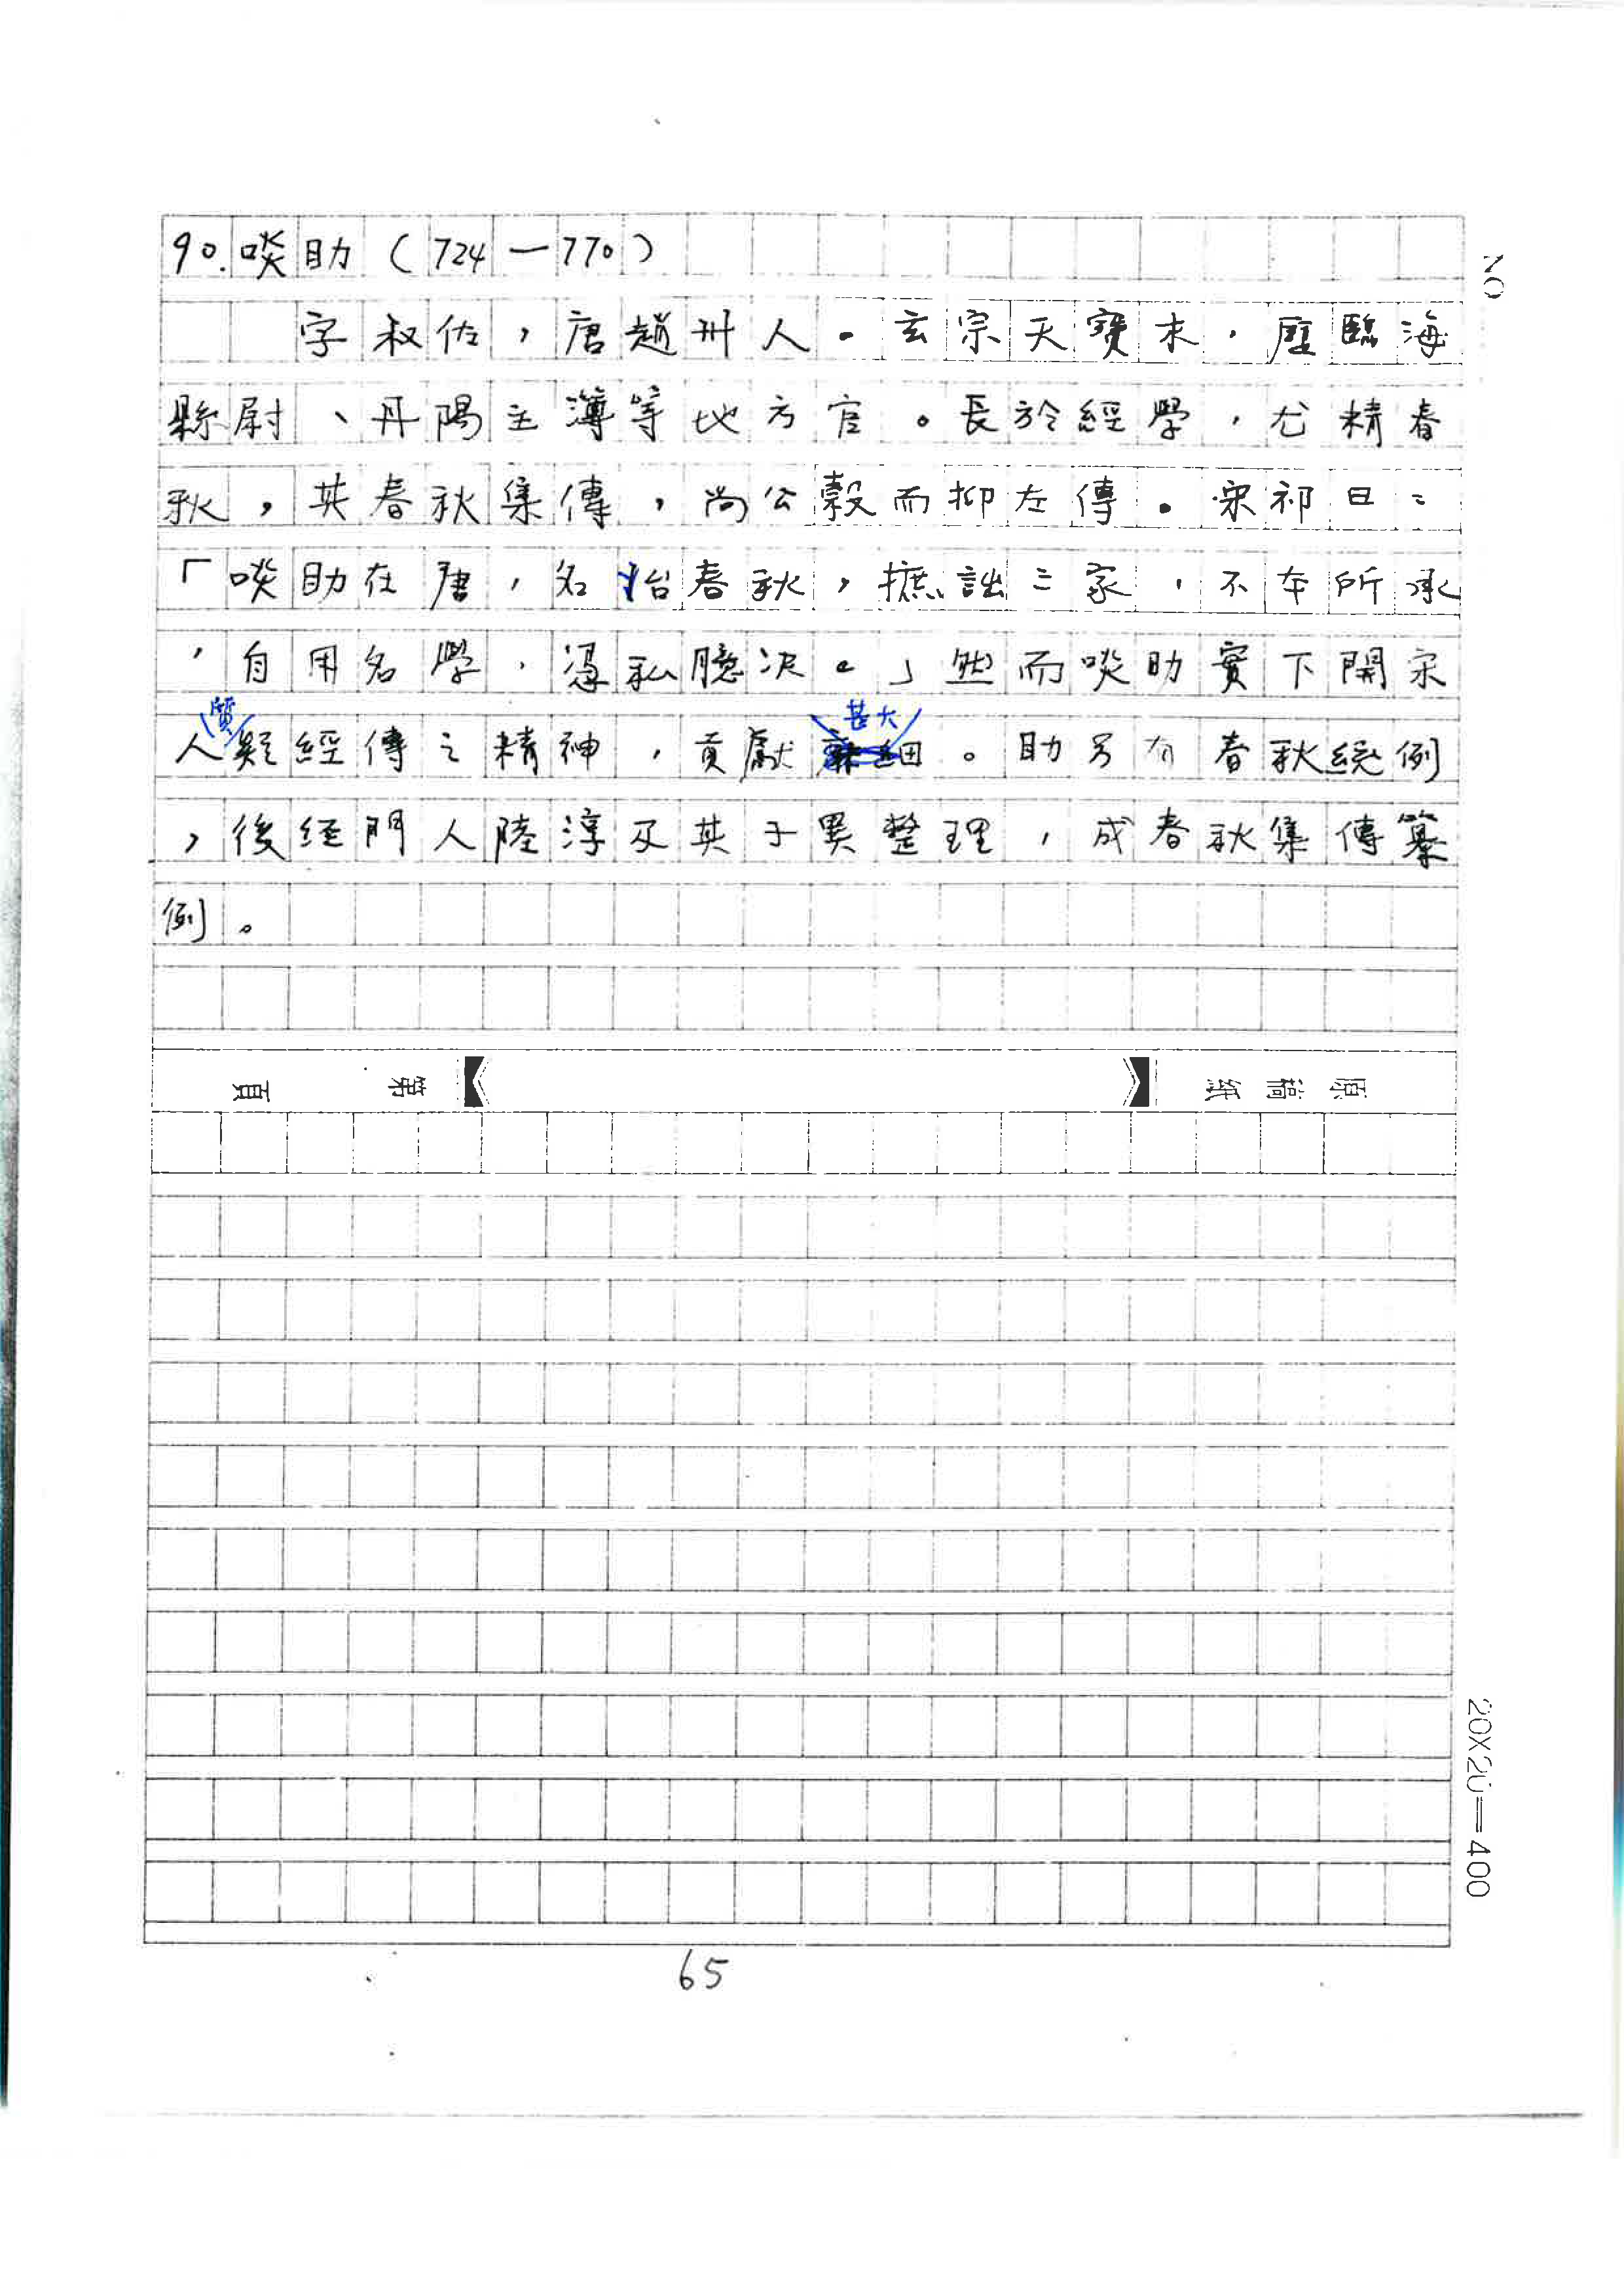 90.啖助（724—770）
字叔佐，唐趙州人。玄宗天寶末，歷臨海
縣尉、丹陽主簿等地方官。長於經學，尤精春
秋，其春秋集傳，尚公穀而抑左傳。宋祁曰：
「啖助在唐，名治春秋，摭訕三家，不本所承
，自用名學，憑私臆決。」然而啖助實下開宋
人質疑經傳之精神，貢獻甚大。助另有春秋統例
，後經門人陸淳及其子異整理，成春秋集傳纂
例。
原稿紙
第 頁
20
20X20=400
65